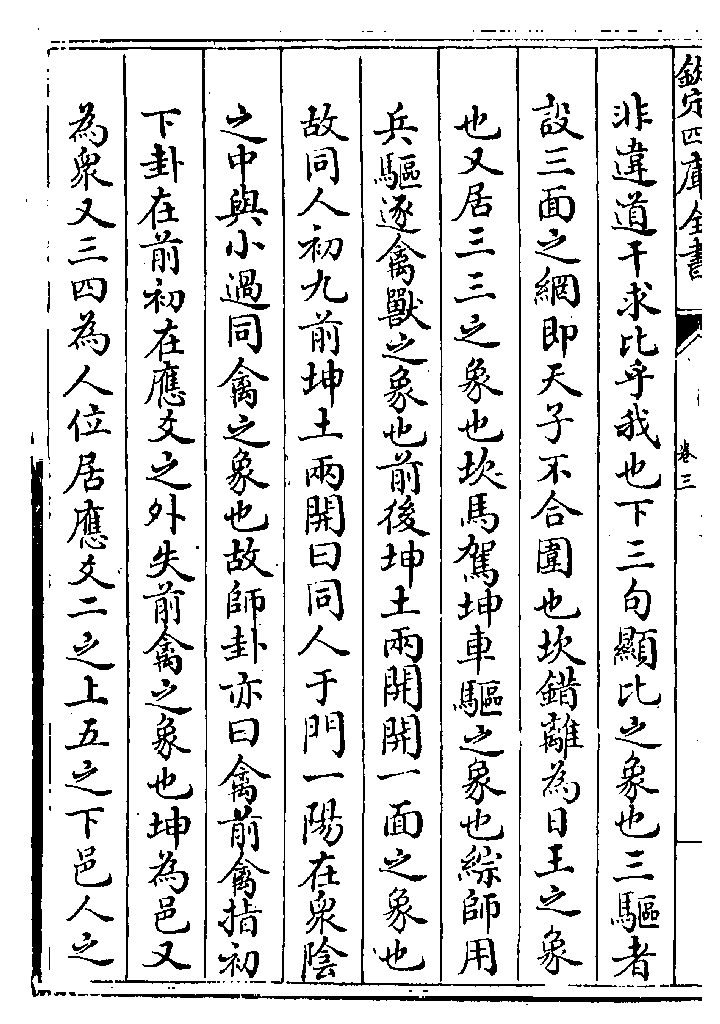 欽定四庫全書
卷三
非違道干求比乎我也下三句顯比之象也三驅者
設三面之網即天子不合圍也坎錯離為日王之象
也又居三三之象也坎馬駕坤車驅之象也綜師用
兵驅逐禽獸之象也前後坤土兩開開一面之象也
故同人初九前坤土兩開曰同人于門一陽在衆陰
之中與小過同禽之象也故師卦亦曰禽前禽指初
下卦在前初在應爻之外失前禽之象也坤為邑又
為衆又三四為人位居應爻二之上五之下邑人之